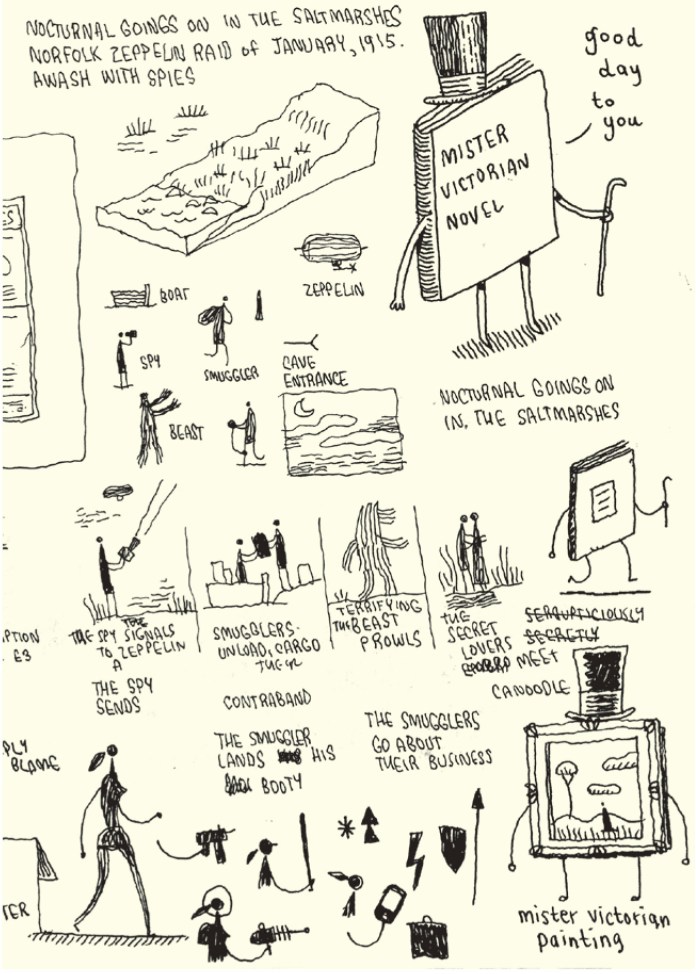 NOCTURNAL GOINGS ON IN THE SALTMARSHES
NORFOLK ZEPPELIN RAID of JANUARY, 1915.
AWASH WITH SPIES
good
day
to
you
MISTER
VICTORIAN
NOVEL
ZEPPELIN
BOAT
SPY
SMUGGLER
CAVE
ENTRANCE
BEAST
NOCTURNAL GOINGS ON
IN, THE SALTMARSHES
THE SPY SIGNALS
TO ZEPPELIN
A
THE SPY
SENDS
SMUGGLERS.
UNLOAD, CARGO
CONTRABAND
THE SMUGGLER
LANDS HIS
BOOTY
TERRIFYING
THE BEAST
PROWLS
THE
SECRET
LOVERS
MEET
CANOODLE
SECRETLY
THE SMUGGLERS
GO ABOUT
THEIR BUSINESS
PTION
E3
PLY
BLAME
TER
mister victorian
painting